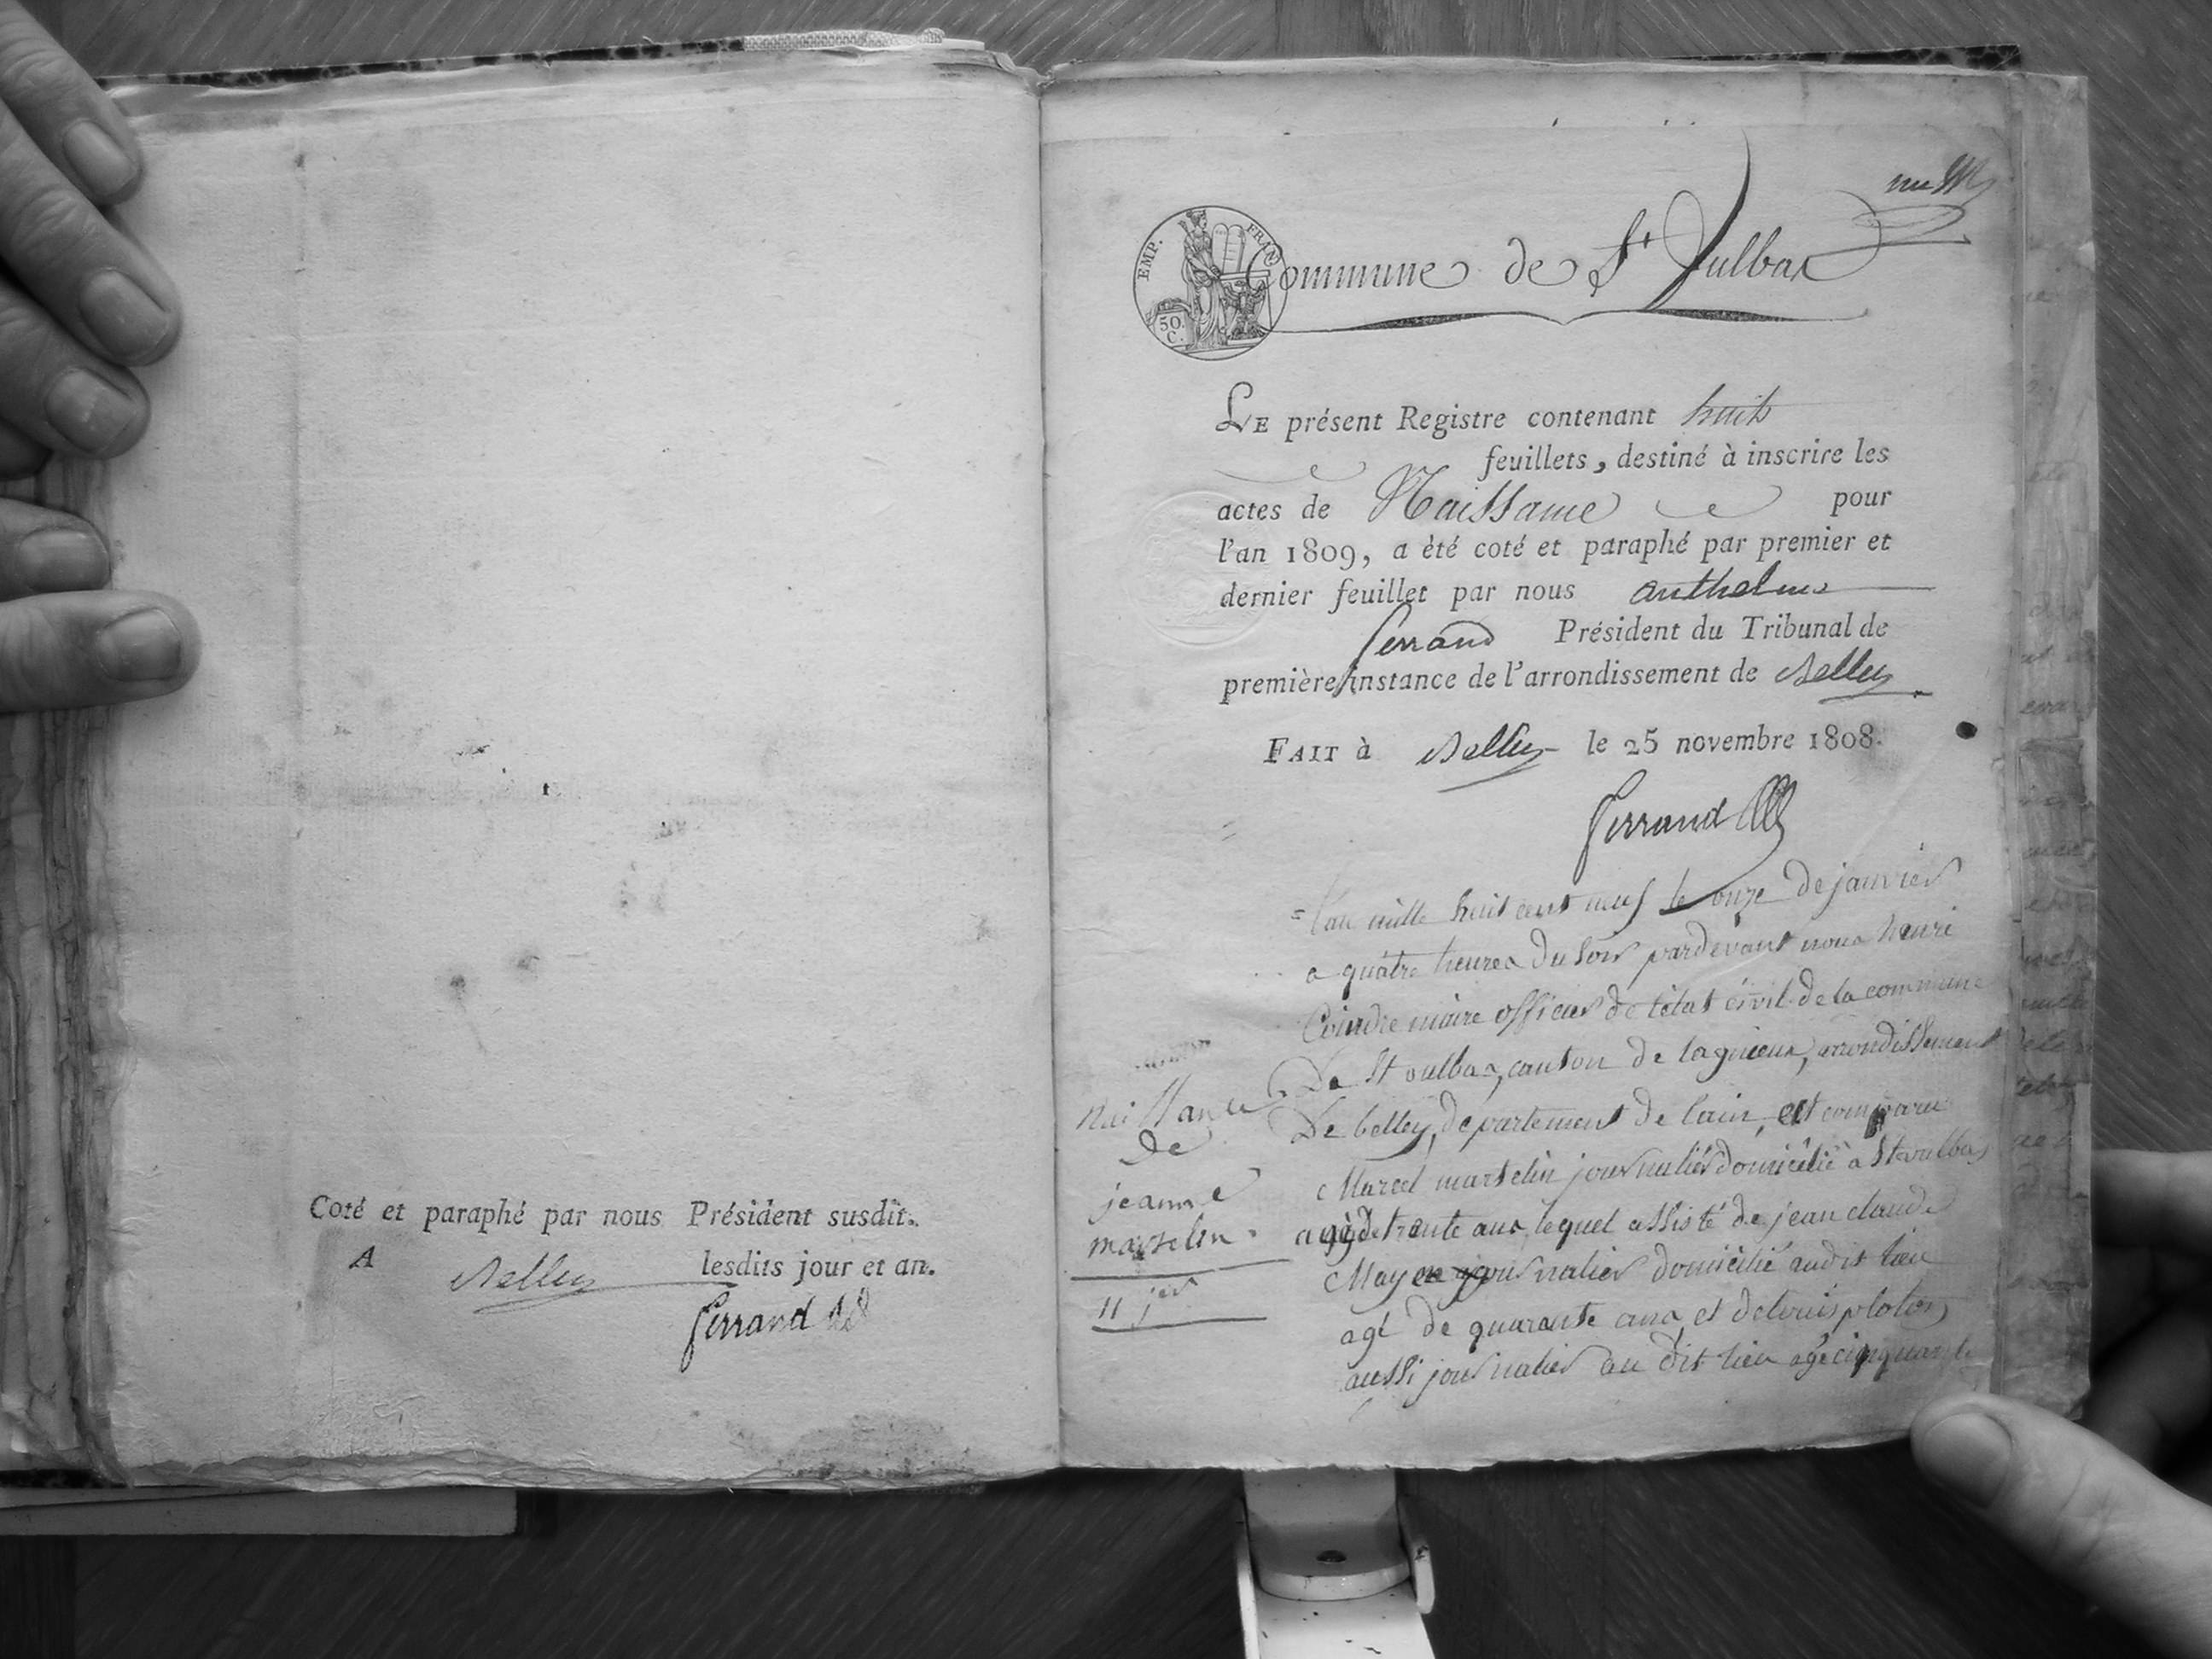 Coté et paraphé par nous Président susdit.
A Belley lesdits jour et an.
Ferrand
EMP. FRAN
50.
C.
Commune de St Vulbas
Le présent Registre contenant huit
feuillets, destiné à inscrire les
actes de Naissance pour
l'an 1809, a été coté et paraphé par premier et
dernier feuillet par nous anthelme
ferrand Président du Tribunal de
première instance de l'arrondissement de Belley.
Fait à Belley le 25 novembre 1808.
Ferrand
L'an mille huit cent neuf le onze de janvier
a quatre heures du soir pardevant nous henri
Coindre maire officier de létat civil de la commune
De St vulbas, canton de lagnieux, arrondissement
De belley, département de lain, est comparu
Marcel marselin journalier domicilié à St vulbas
agé de trente ans lequel assisté de jean claude
May journalier domicilié audit lieu
agé de quarante ans et de louis
aussi journalier au dit lieu agé cinquante
Naissance
de
jeanne
marselin.
11 jer